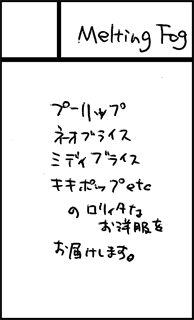 Melting Fog
プーリップ
ネオブライス
ミディブライス
キキポップetc
のロリィタな
お洋服を
お届けします。